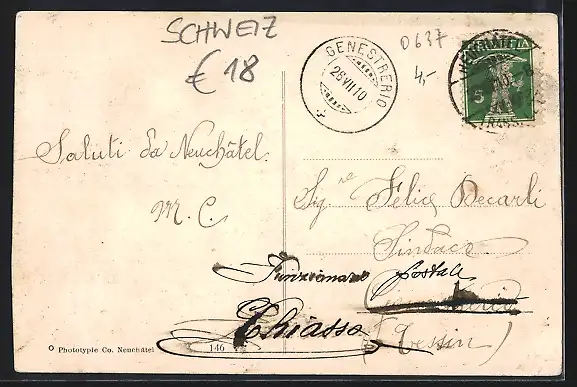 SCHWEIZ
€ 18
0637
4,-
GENESTRERIO
26 VII 10
HELVETIA
5
Saluti da Neuchâtel.
M. C.
Sig.re Felice Decarli
Sindaco
Funzionario postale
Chiasso
(Tessin)
Phototypie Co. Neuchâtel
146